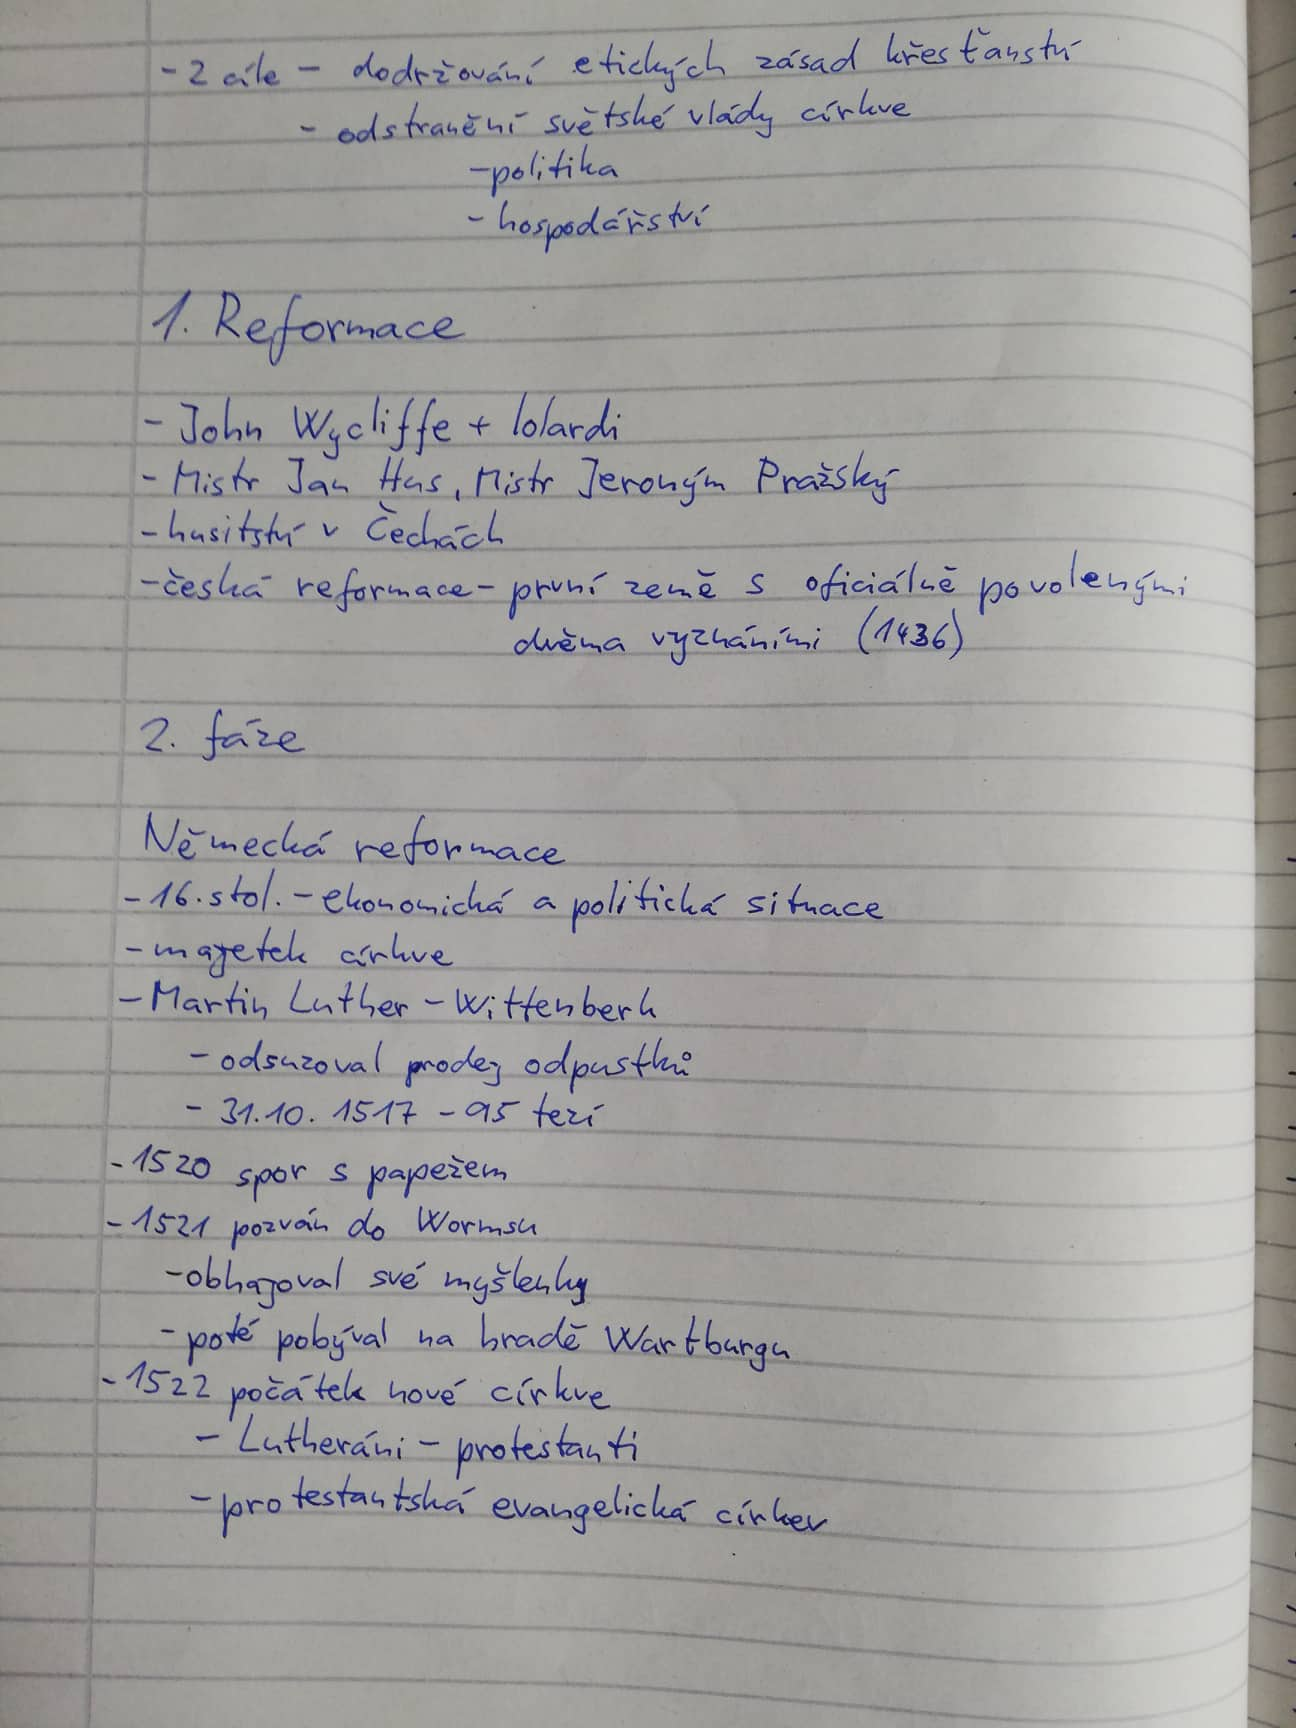 - 2 cíle - dodržování etických zásad křesťanství
- odstranění světské vlády církve
- politika
- hospodářství
1. Reformace
- John Wycliffe + lolardi
- Mistr Jan Hus, Mistr Jeroným Pražský
- husitství v Čechách
- česká reformace - první země s oficiálně povolenými
dvěma vyznáními (1436)
2. fáze
Německá reformace
- 16. stol. - ekonomická a politická situace
- majetek církve
- Martin Luther - Wittenberk
- odsuzoval prodej odpustků
- 31.10. 1517 - 95 tezí
- 1520 spor s papežem
- 1521 pozván do Wormsu
- obhajoval své myšlenky
- poté pobýval na hradě Wartburgu
- 1522 počátek nové církve
- Lutheráni - protestanti
- protestantská evangelická církev